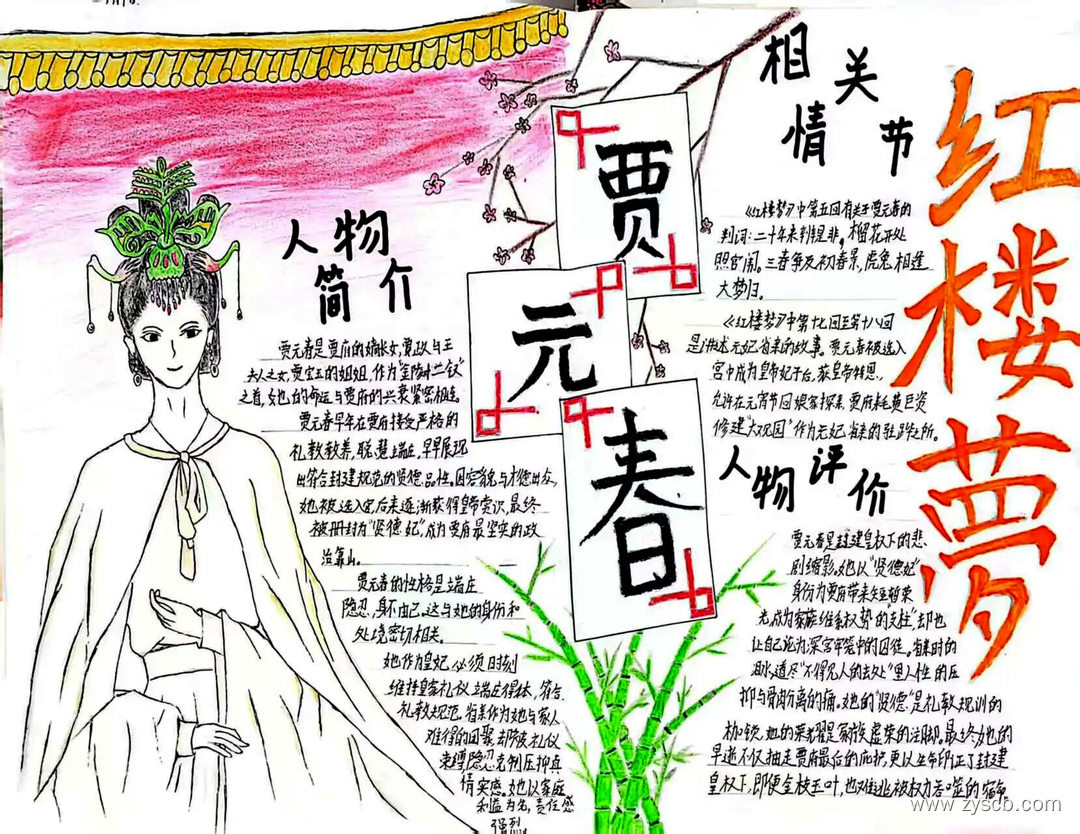 红楼梦
贾元春
人物
简介
贾元春是贾府的嫡长女，贾政与王
夫人之女，贾宝玉的姐姐，作为“金陵十二钗”
之首，她的命运与贾府的兴衰紧密相连
贾元春早年在贾府接受严格的
礼教教养，聪慧端庄，早早展现
出符合封建规范的贤德品性。因容貌与才德出众，
她被选入宫，后来逐渐获得皇帝赏识，最终
被册封为“贤德妃”，成为贾府最坚实的政
治靠山。
贾元春的性格是端庄
隐忍，身不由己。这与她的身份和
处境密切相关
她作为皇妃，必须时刻
维持皇家礼仪，端庄得体，符合
礼教规范。省亲作为她与家人
难得的团聚，却被礼仪
束缚，隐忍克制压抑真
情实感。她以家庭
利益为先，责任感
强烈。
相关
情节
《红楼梦》中第五回有关于贾元春的
判词：二十年来辨是非，榴花开处
照宫闱。三春争及初春景，虎兔相逢
大梦归。
《红楼梦》中第十七回至第十八回
是讲述元妃省亲的故事。贾元春被选入
宫中成为皇帝妃子后，获皇帝特恩，
允许在元宵节回娘家探亲，贾府耗费巨资
修建“大观园”作为元妃省亲的驻跸之所。
人物评价
贾元春是封建皇权下的悲
剧缩影，她以“贤德妃”
身份为贾府带来短暂荣
光，成为家族维系权势的支柱，却也
让自己沦为深宫牢笼中的囚徒。省亲时的
泪水，道尽“不得见人的去处”里人性的压
抑与骨肉分离的痛。她的“贤德”是礼教规训的
枷锁，她的荣耀是家族虚荣的注脚，最终她的
早逝不仅抽走贾府最后的庇护，更以生命印证了封建
皇权下，即便金枝玉叶，也难逃被权力吞噬的宿命
www.zyscb.com